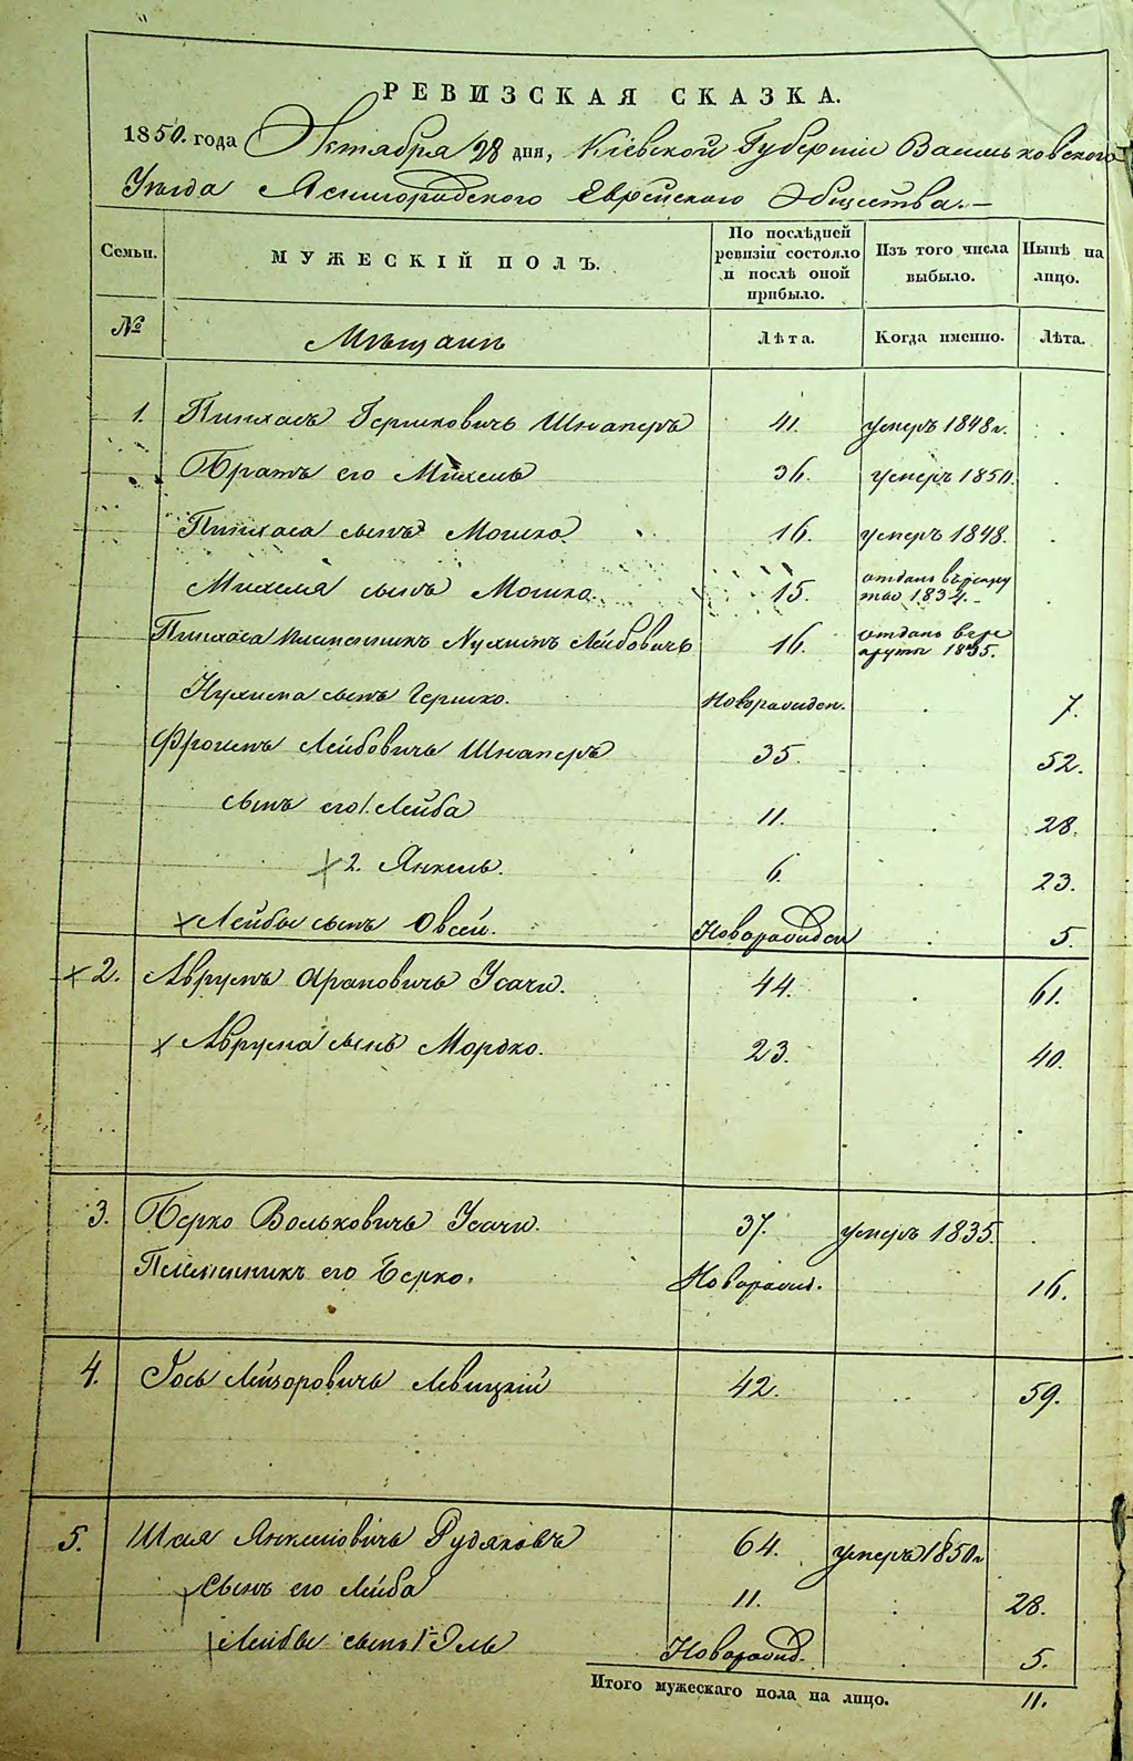 РЕВИЗСКАЯ СКАЗКА.
1850. года Октября 28 дня, Кіевской Губерніи Васильковского
Уѣзда Ясногородского Еврейского Общества.—
Семьи.
МУЖЕСКІЙ ПОЛЪ.
По послѣдней
ревизіи состояло
и послѣ оной
прибыло.
Изъ того числа
выбыло.
Нынѣ на
лицо.
№
Мѣщанъ
Лѣта.
Когда именно.
Лѣта.
1. Пинхасъ Гершковичъ Шнаперъ 41. умеръ 1848 г.
Братъ его Михель 36. умеръ 1850.
Пинхаса сынъ Мошко 16. умеръ 1848.
Михеля сынъ Мошко. 15. отданъ въ рекру
ты 1834.
Пинхаса племянникъ Нухимъ Лейбовичъ 16. отданъ в ре
круты 1835.
Нухима сынъ Гершко. Новорожден. 7.
Фроимъ Лейбовичъ Шнаперъ 35. 52.
сынъ его 1. Лейба 11. 28.
2. Янкель. 6. 23.
Лейбы сынъ Овсей. Новорожден 5.
2. Аврумъ Ароновичъ Усачъ. 44. 61.
Аврума сынъ Мордко. 23. 40.
3. Берко Вольковичъ Усачъ. 37. умеръ 1835.
Племянникъ его Берко. Новорожд. 16.
4. Гось Лейзоровичъ Левицкій 42. 59.
5. Шая Янкеліовичъ Рудяковъ 64. умеръ 1850 г
Сынъ его Лейба 11. 28.
Лейбы сынъ 1й Эль Новорожд. 5.
Итого мужескаго пола на лицо. 11.